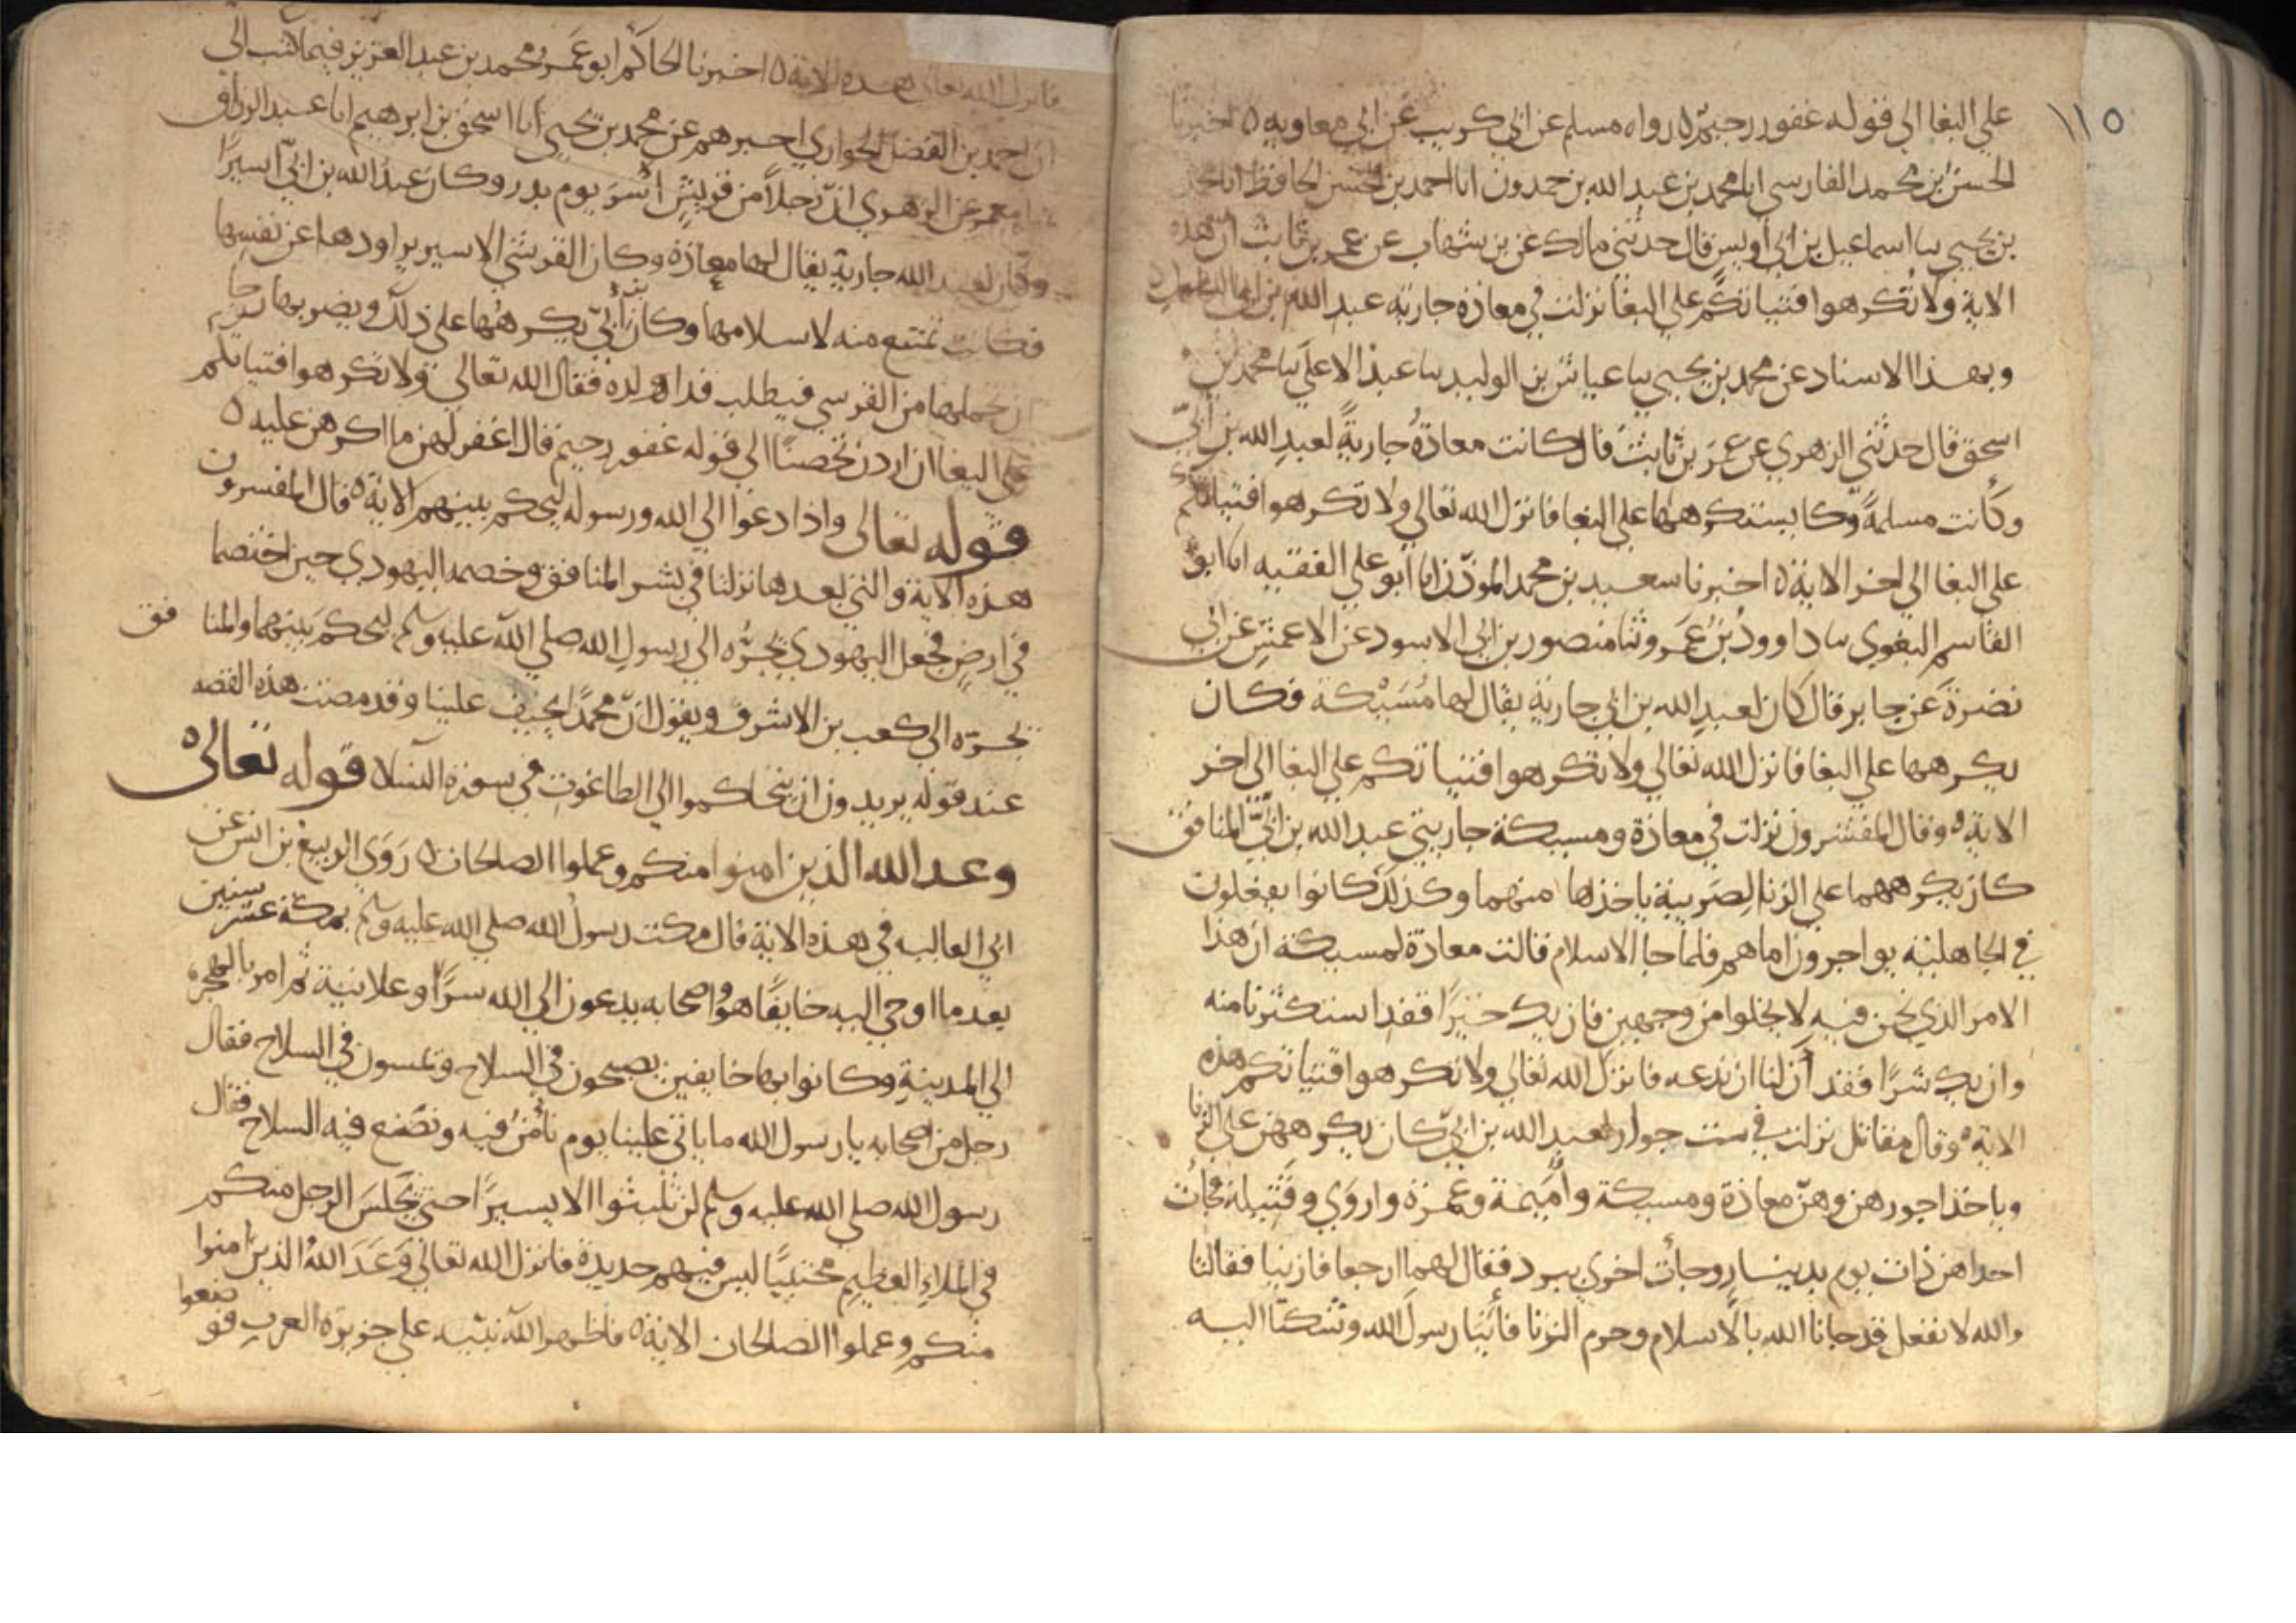 ١١٥
علي البغا الي قوله غفور رحيم ٥ رواه مسلم عن ابي كريب عن ابي معاويه ٥ اخبرنا
الحسن بن محمد الفارسي انا محمد بن عبد الله بن حمدون انا احمد بن الحسن الحافظ انا محمد
بن يحيي سا اسماعيل بن ابي اويس قال حدثني مالك عن بن شهاب عن عمر بن ثابت ان هذه
الاية ولا تكرهوا فتياتكم علي البغا نزلت في معاذة جارية عبد الله بن
وبهذا الاسناد عن محمد بن يحيي سا عياش بن الوليد سا عبد الاعلي سا محمد بن
اسحق قال حدثني الزهري عن عمر بن ثابت قال كانت معاذة جارية لعبد الله بن ابي
وكانت مسلمة وكان يستكرهها علي البغا فانزل الله تعالي ولا تكرهوا فتياتكم
علي البغا الي اخر الاية ٥ اخبرنا سعيد بن محمد الموذن انا ابو علي الفقيه انا ابو
القاسم البغوي سا داوود بن عمرو ثنا منصور بن ابي الاسود عن الاعمش عن ابي
نضرة عن جابر قال كان لعبد الله بن ابي جارية يقال لها مسيكة فكان
يكرهها علي البغا فانزل الله تعالي ولا تكرهوا فتياتكم علي البغا الي اخر
الاية ٥ وقال المفسرون نزلت في معاذة ومسيكة جاريتي عبد الله بن ابي المنافق
كان يكرههما علي الزنا لضريبة ياخذها منهما وكذلك كانوا يفعلون
في الجاهلية يواجرون اماهم فلما جا الاسلام قالت معاذة لمسيكة ان هذا
الامر الذي نحن فيه لا يخلوا من وجهين فان يك خيرا فقد استكثرنا منه
وان يك شرا فقد آن لنا ان ندعه فانزل الله تعالي ولا تكرهوا فتياتكم هذه
الاية ٥ وقال مقاتل نزلت في ست جوار لعبد الله بن ابي كان يكرههن علي الزنا
وياخذ اجورهن وهن معاذة ومسيكة واميمة وعمرة واروي وقتيلة فجات
احداهن ذات يوم بدينار وجات اخري ببرد فقال لهما ارجعا فازنيا فقالتا
والله لا نفعل قد جانا الله بالاسلام وحرم الزنا فاتيا رسول الله وشكتا اليه
فانزل الله تعالي هذه الاية ٥ اخبرنا الحاكم ابو عمرو محمد بن عبد العزيز فيما كتب الي
ان احمد بن الفضل الحواري اخبرهم عن محمد بن يحيي انا اسحق بن ابرهيم انا عبد الرزاق
معمر عن الزهري ان رجلا من قريش اسر يوم بدر وكان عبد الله بن ابي اسيرا
وكان لعبد الله جارية يقال لها معاذة وكان القرشي الاسير يراودها عن نفسها
فكانت تمتنع منه لاسلامها وكان بن ابي يكرهها علي ذلك ويضربها رجا
ان تحملها من القرشي فيطلب فدا ولده فقال الله تعالي ولا تكرهوا فتياتكم
علي البغا ان اردن تحصنا الي قوله غفور رحيم قال اغفر لهن ما اكرهن عليه ٥
قوله تعالي واذا دعوا الي الله ورسوله ليحكم بينهم الاية ٥ قال المفسرون
هذه الاية والتي بعدها نزلتا في بشر المنافق وخصمه اليهودي حين اختصما
في ارض فجعل اليهودي يجره الي رسول الله صلي الله عليه وسلم ليحكم بينهما والمنافق
يجره الي كعب بن الاشرف ويقول ان محمدا يحيف علينا وقد مضت هذه القصه
عند قوله يريدون ان يتحاكموا الي الطاغوت في سورة النسا ٥ قوله تعالي ٥
وعد الله الذين امنوا منكم وعملوا الصالحات ٥ روي الربيع بن انس عن
ابي العاليه في هذه الاية قال مكث رسول الله صلي الله عليه وسلم بمكة عشر سنين
بعد ما اوحي اليه خايفا هو واصحابه يدعون الي الله سرا وعلانية ثم امر بالهجرة
الي المدينة وكانوا بها خايفين يصبحون في السلاح وتمسون في السلاح فقال
رجل من اصحابه يا رسول الله ما ياتي علينا يوم نامن فيه ونضع فيه السلاح فقال
رسول الله صلي الله عليه وسلم لن تلبثوا الا يسيرا حتي يجلس الرجل منكم
في الملاء العظيم محتبيا ليس فيهم حديدة فانزل الله تعالي وعد الله الذين امنوا
منكم وعملوا الصالحات الاية ٥ فاظهر الله نبيه علي جزيرة العرب فوضعوا